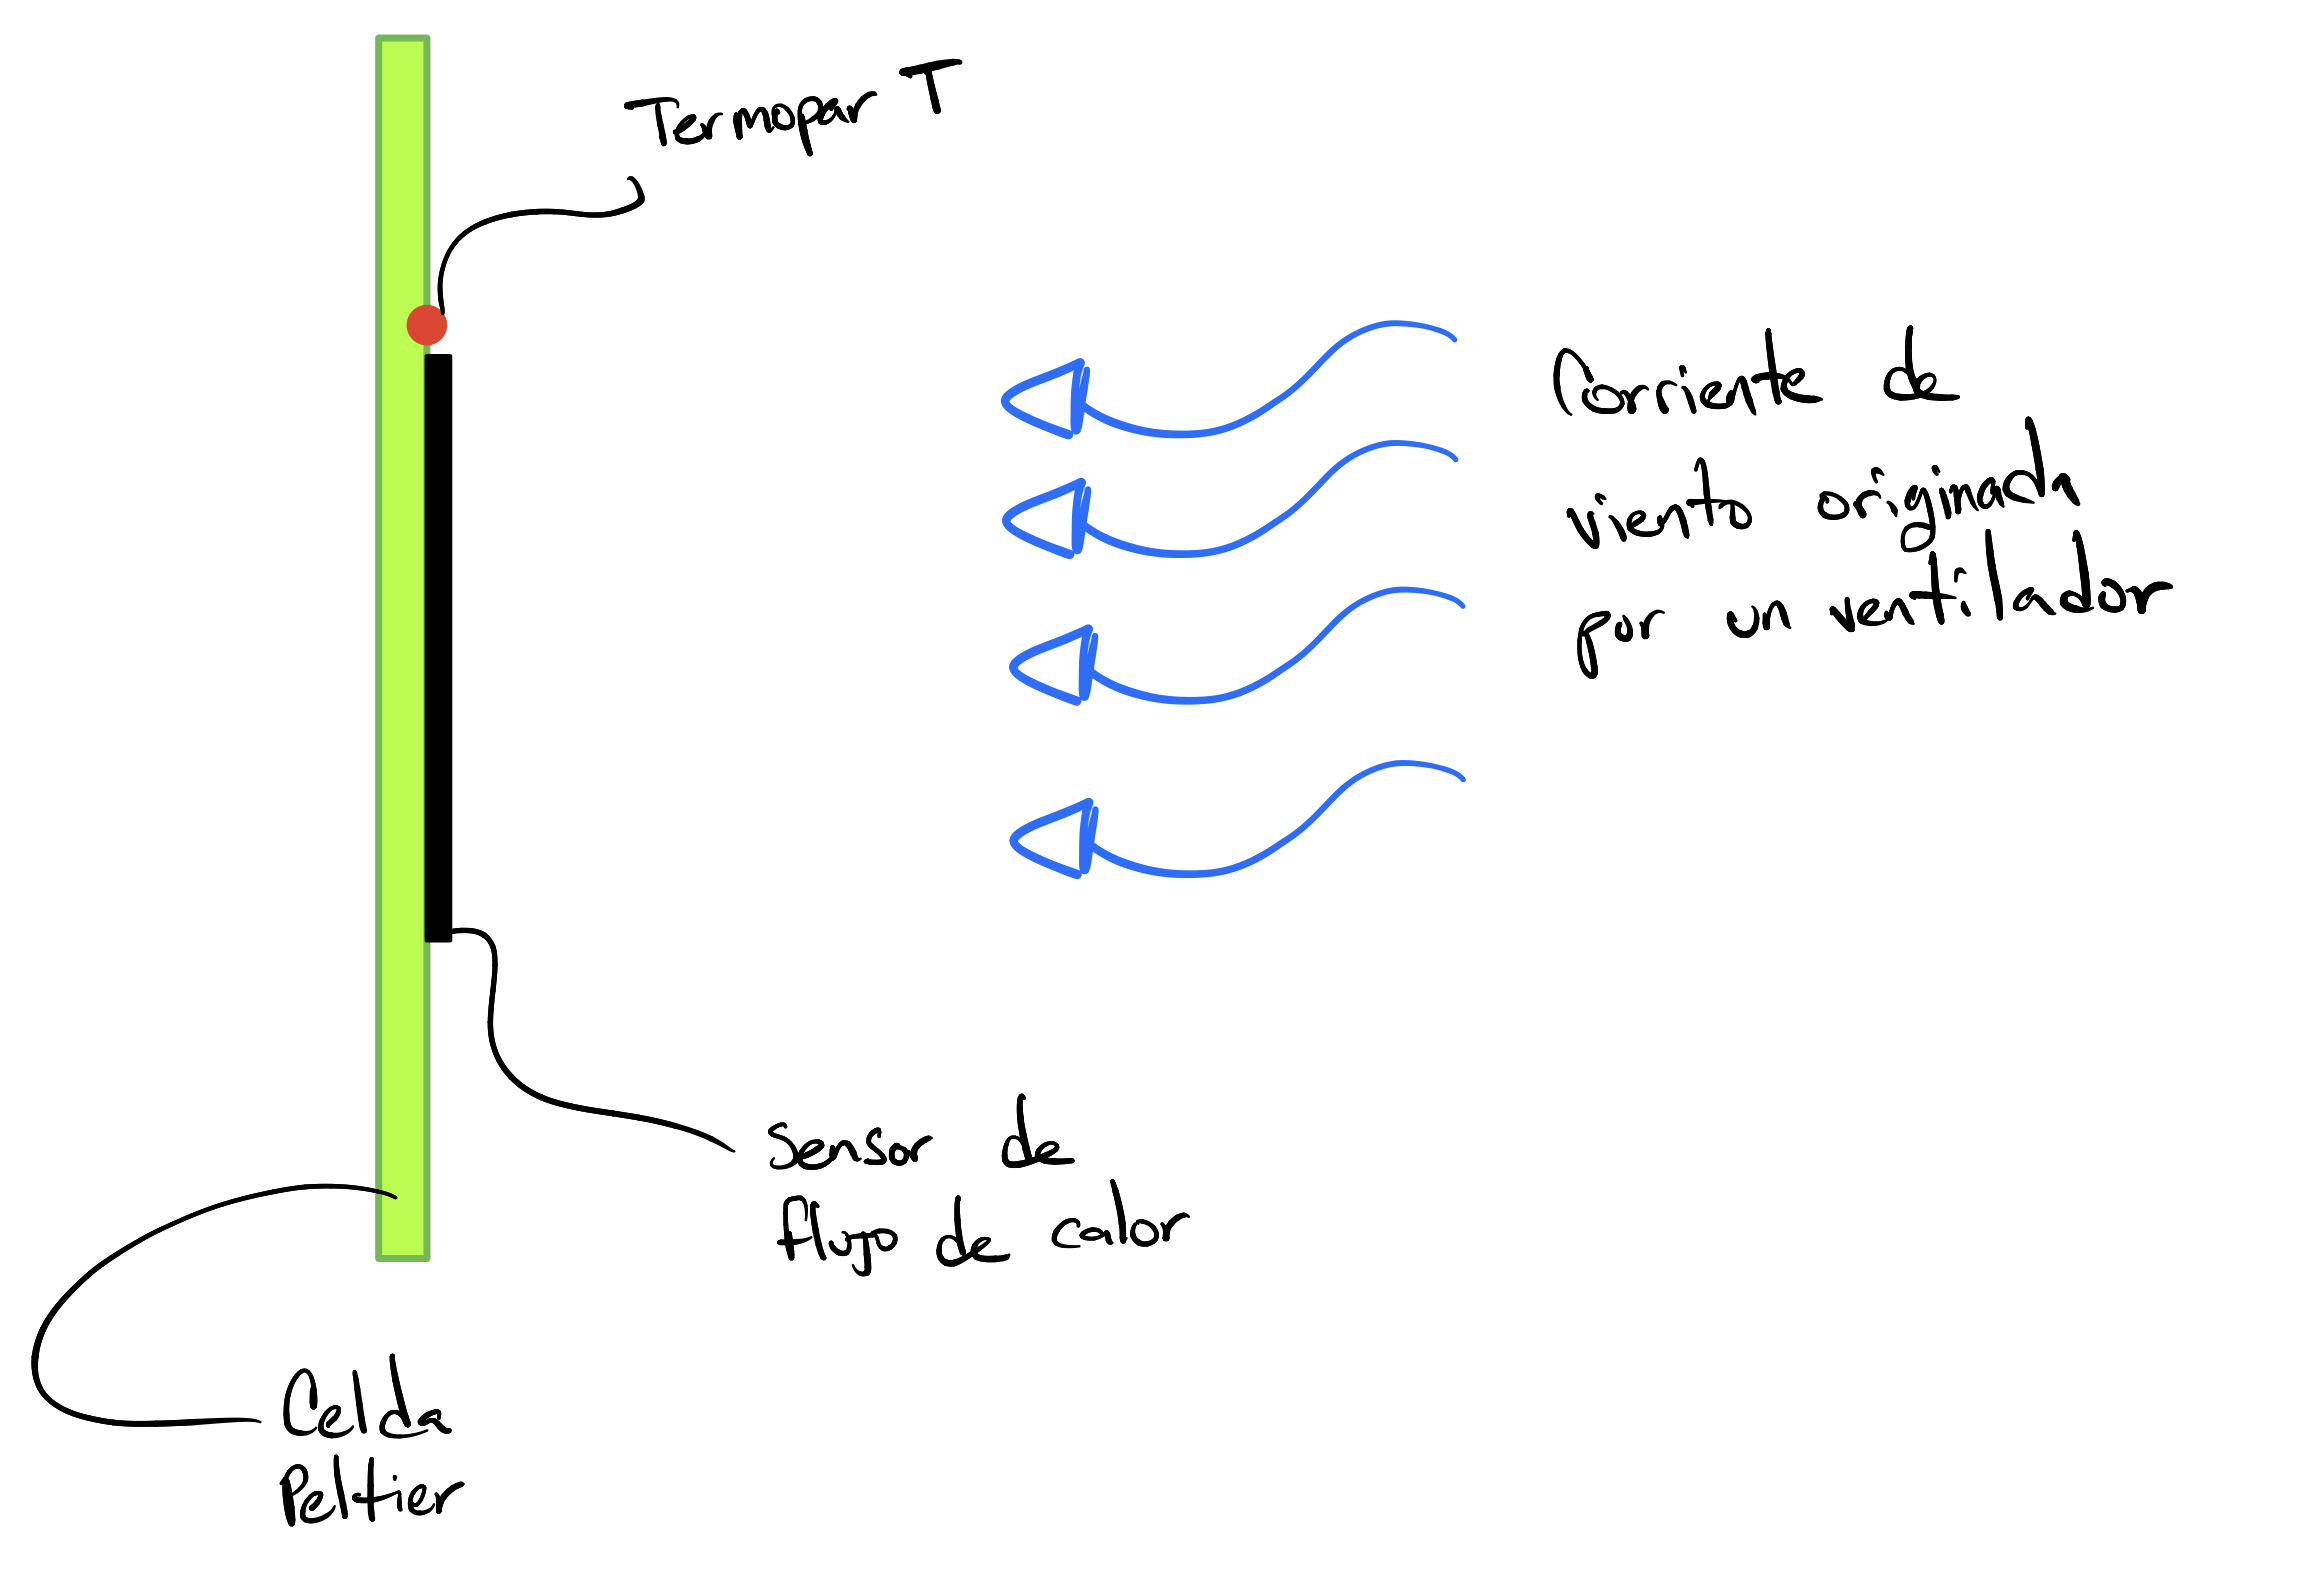 Termopar T
Corriente de
viento originada
por un ventilador
Sensor de
flujo de calor
Celda
Peltier